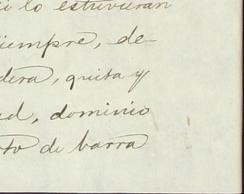 lo estuvieran
siempre, de
dera, quita y
ed, dominio
to de barra